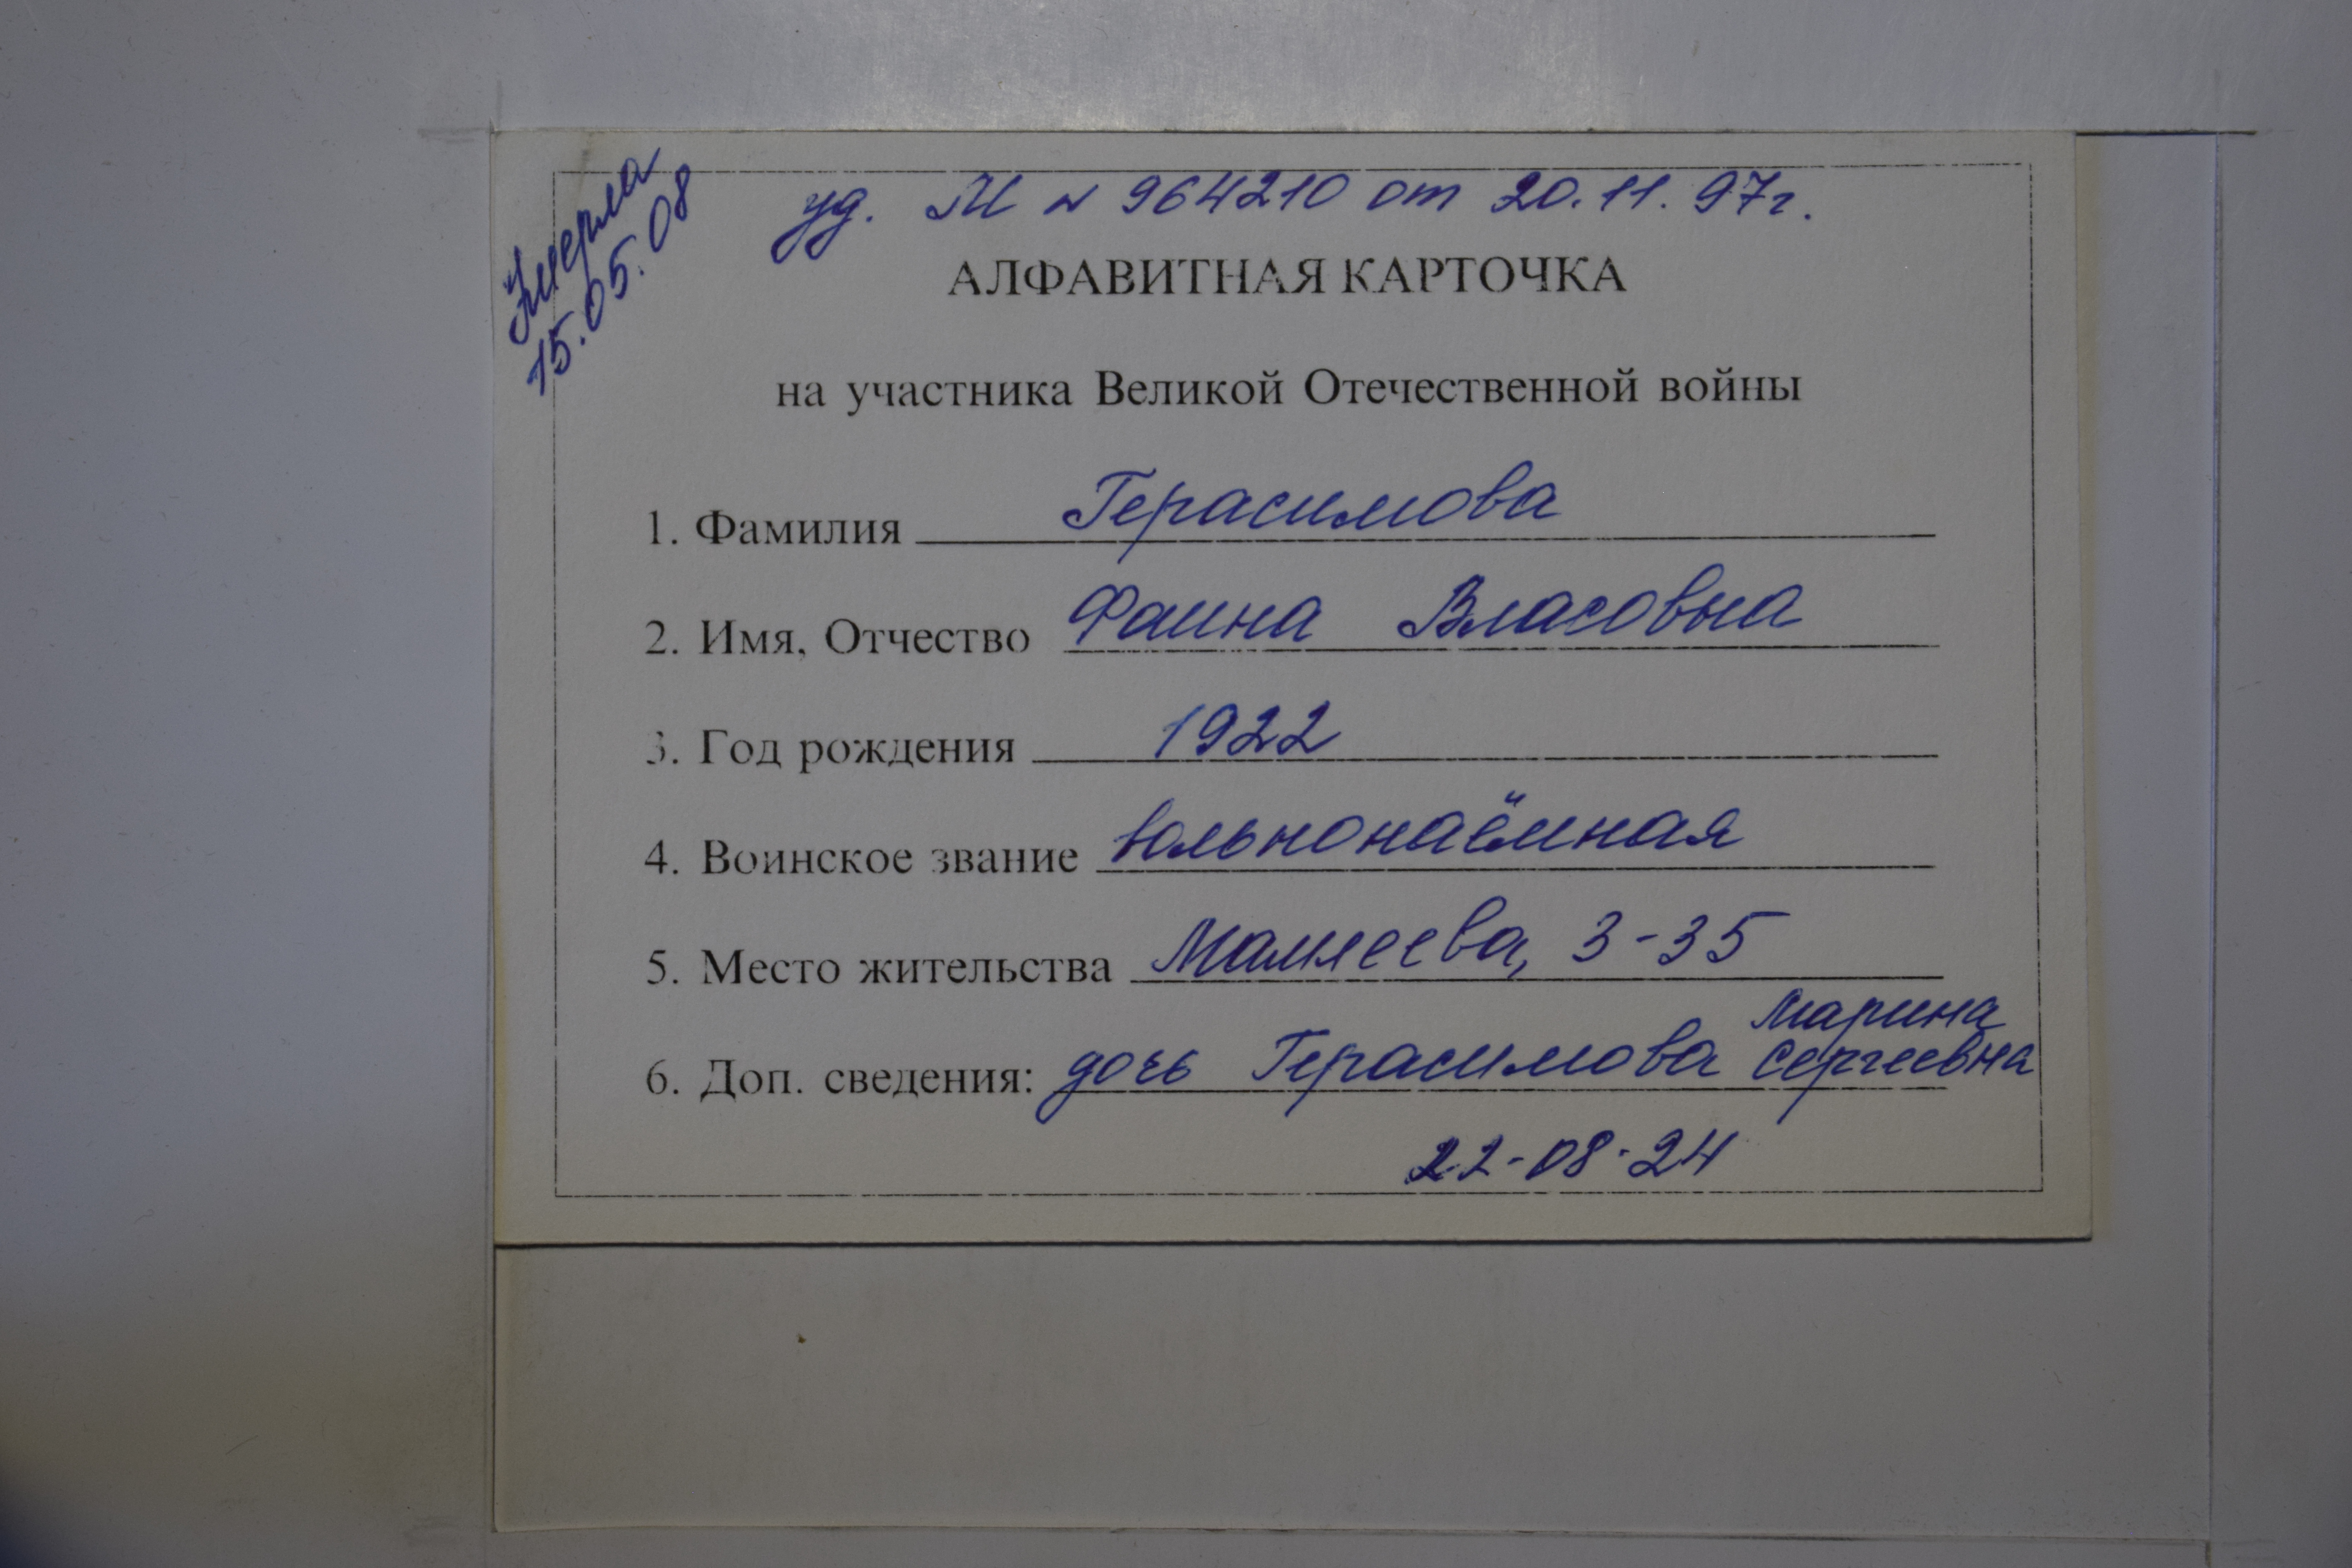 Умерла
15.05.08
уд. М № 964210 от 20.11.97г.
АЛФАВИТНАЯ КАРТОЧКА
на участника Великой Отечественной войны
1. Фамилия Герасимова
2. Имя, Отчество Фаина Власовна
3. Год рождения 1922
4. Воинское звание вольнонаёмная
5. Место жительства Мамлеева, 3-35
6. Доп. сведения: дочь Герасимова Марина Сергеевна
22-08-24